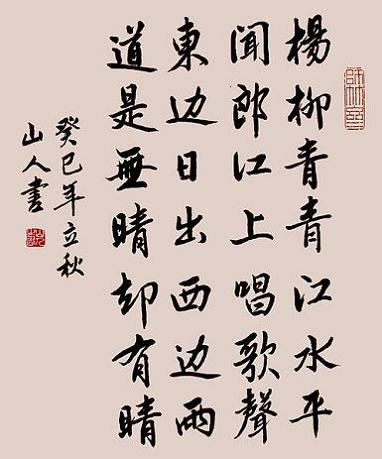 楊柳青青江水平
聞郎江上唱歌聲
東边日出西边雨
道是無晴却有晴
癸巳年立秋
山人書